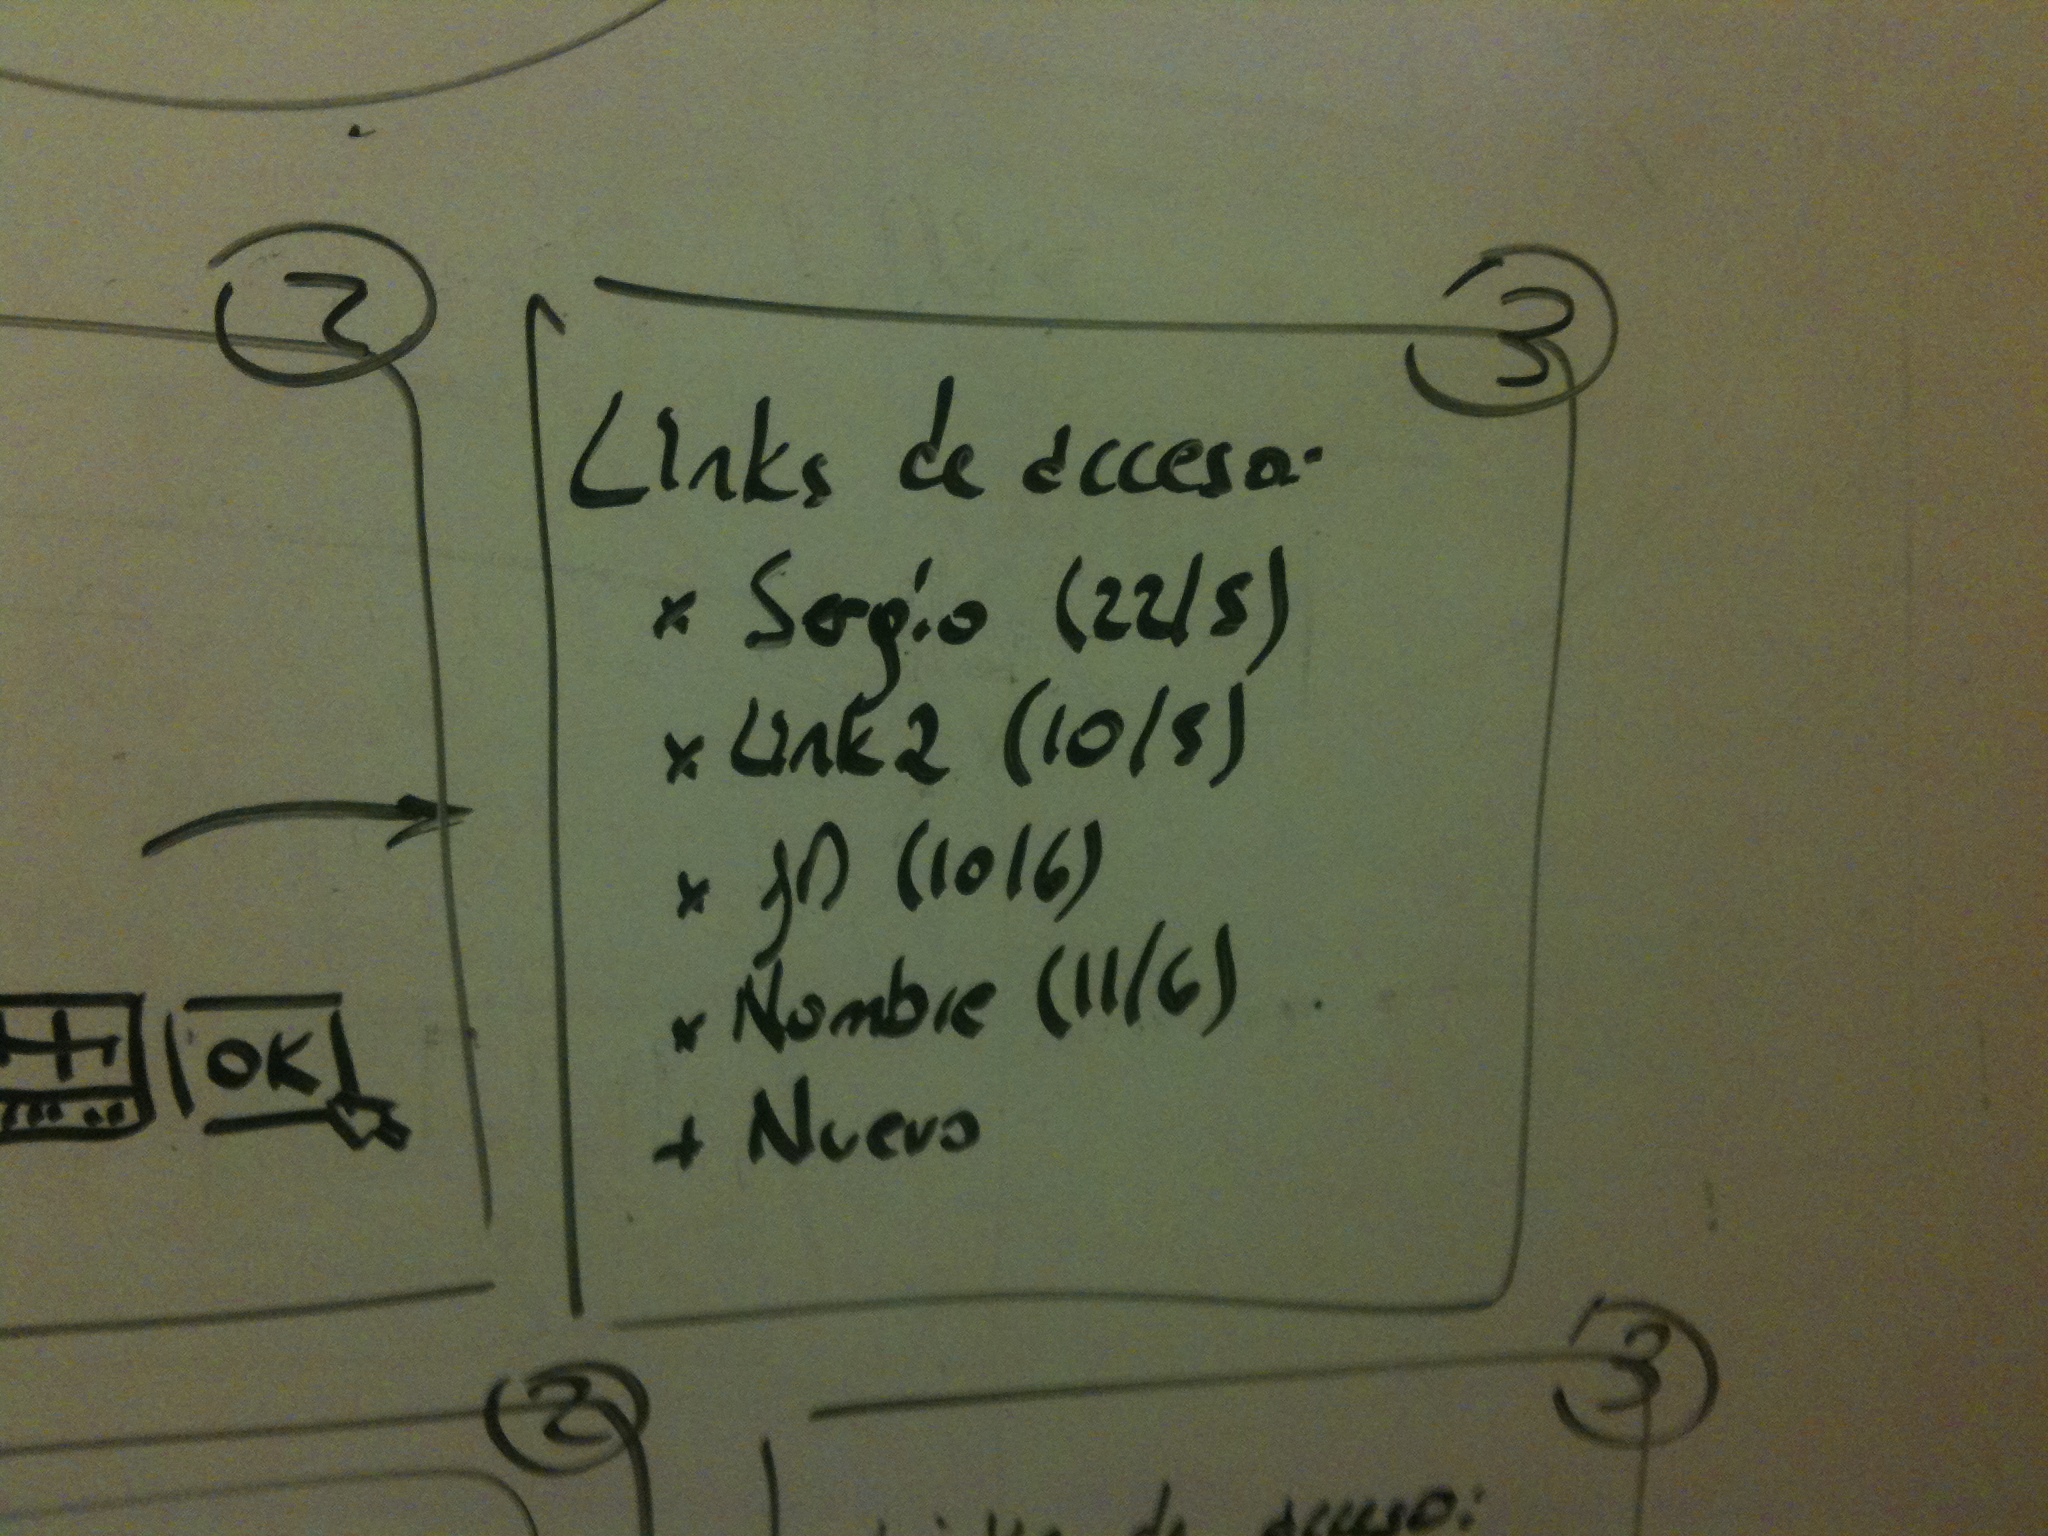 2
3
Links de acceso:
x Sergio (22/5)
x Link2 (10/5)
x JD (10/6)
x Nombre (11/6)
+ Nuevo
OK
2
3
Links de acceso: